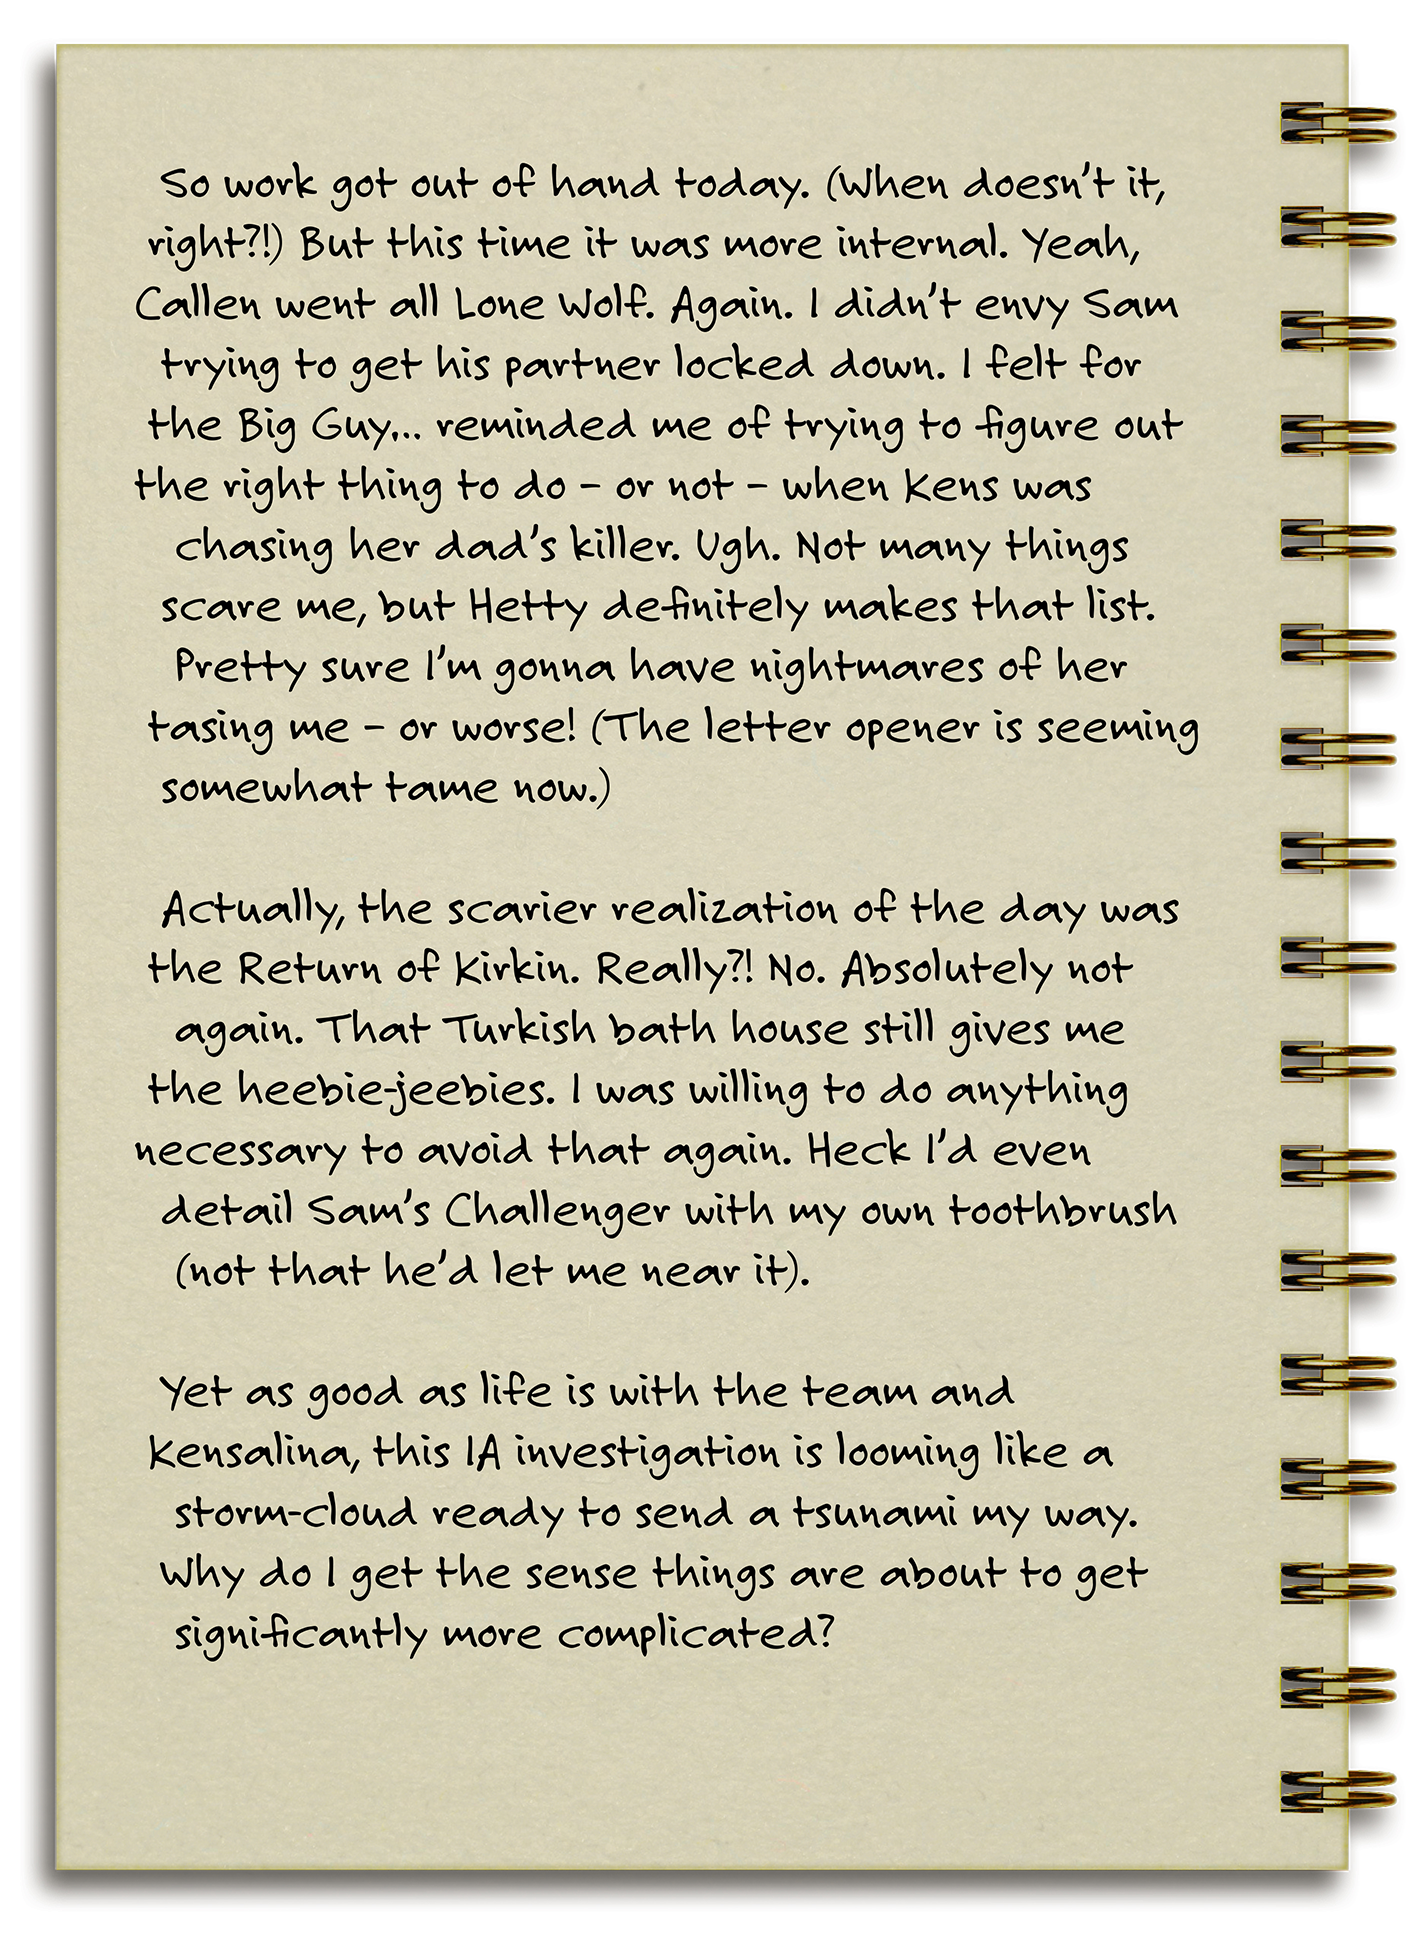 So work got out of hand today. (When doesn't it,
right?!) But this time it was more internal. Yeah,
Callen went all Lone Wolf. Again. I didn't envy Sam
trying to get his partner locked down. I felt for
the Big Guy... reminded me of trying to figure out
the right thing to do – or not – when Kens was
chasing her dad's killer. Ugh. Not many things
scare me, but Hetty definitely makes that list.
Pretty sure I'm gonna have nightmares of her
tasing me – or worse! (The letter opener is seeming
somewhat tame now.)

Actually, the scarier realization of the day was
the Return of Kirkin. Really?! No. Absolutely not
again. That Turkish bath house still gives me
the heebie-jeebies. I was willing to do anything
necessary to avoid that again. Heck I'd even
detail Sam's Challenger with my own toothbrush
(not that he'd let me near it).

Yet as good as life is with the team and
Kensalina, this IA investigation is looming like a
storm-cloud ready to send a tsunami my way.
Why do I get the sense things are about to get
significantly more complicated?